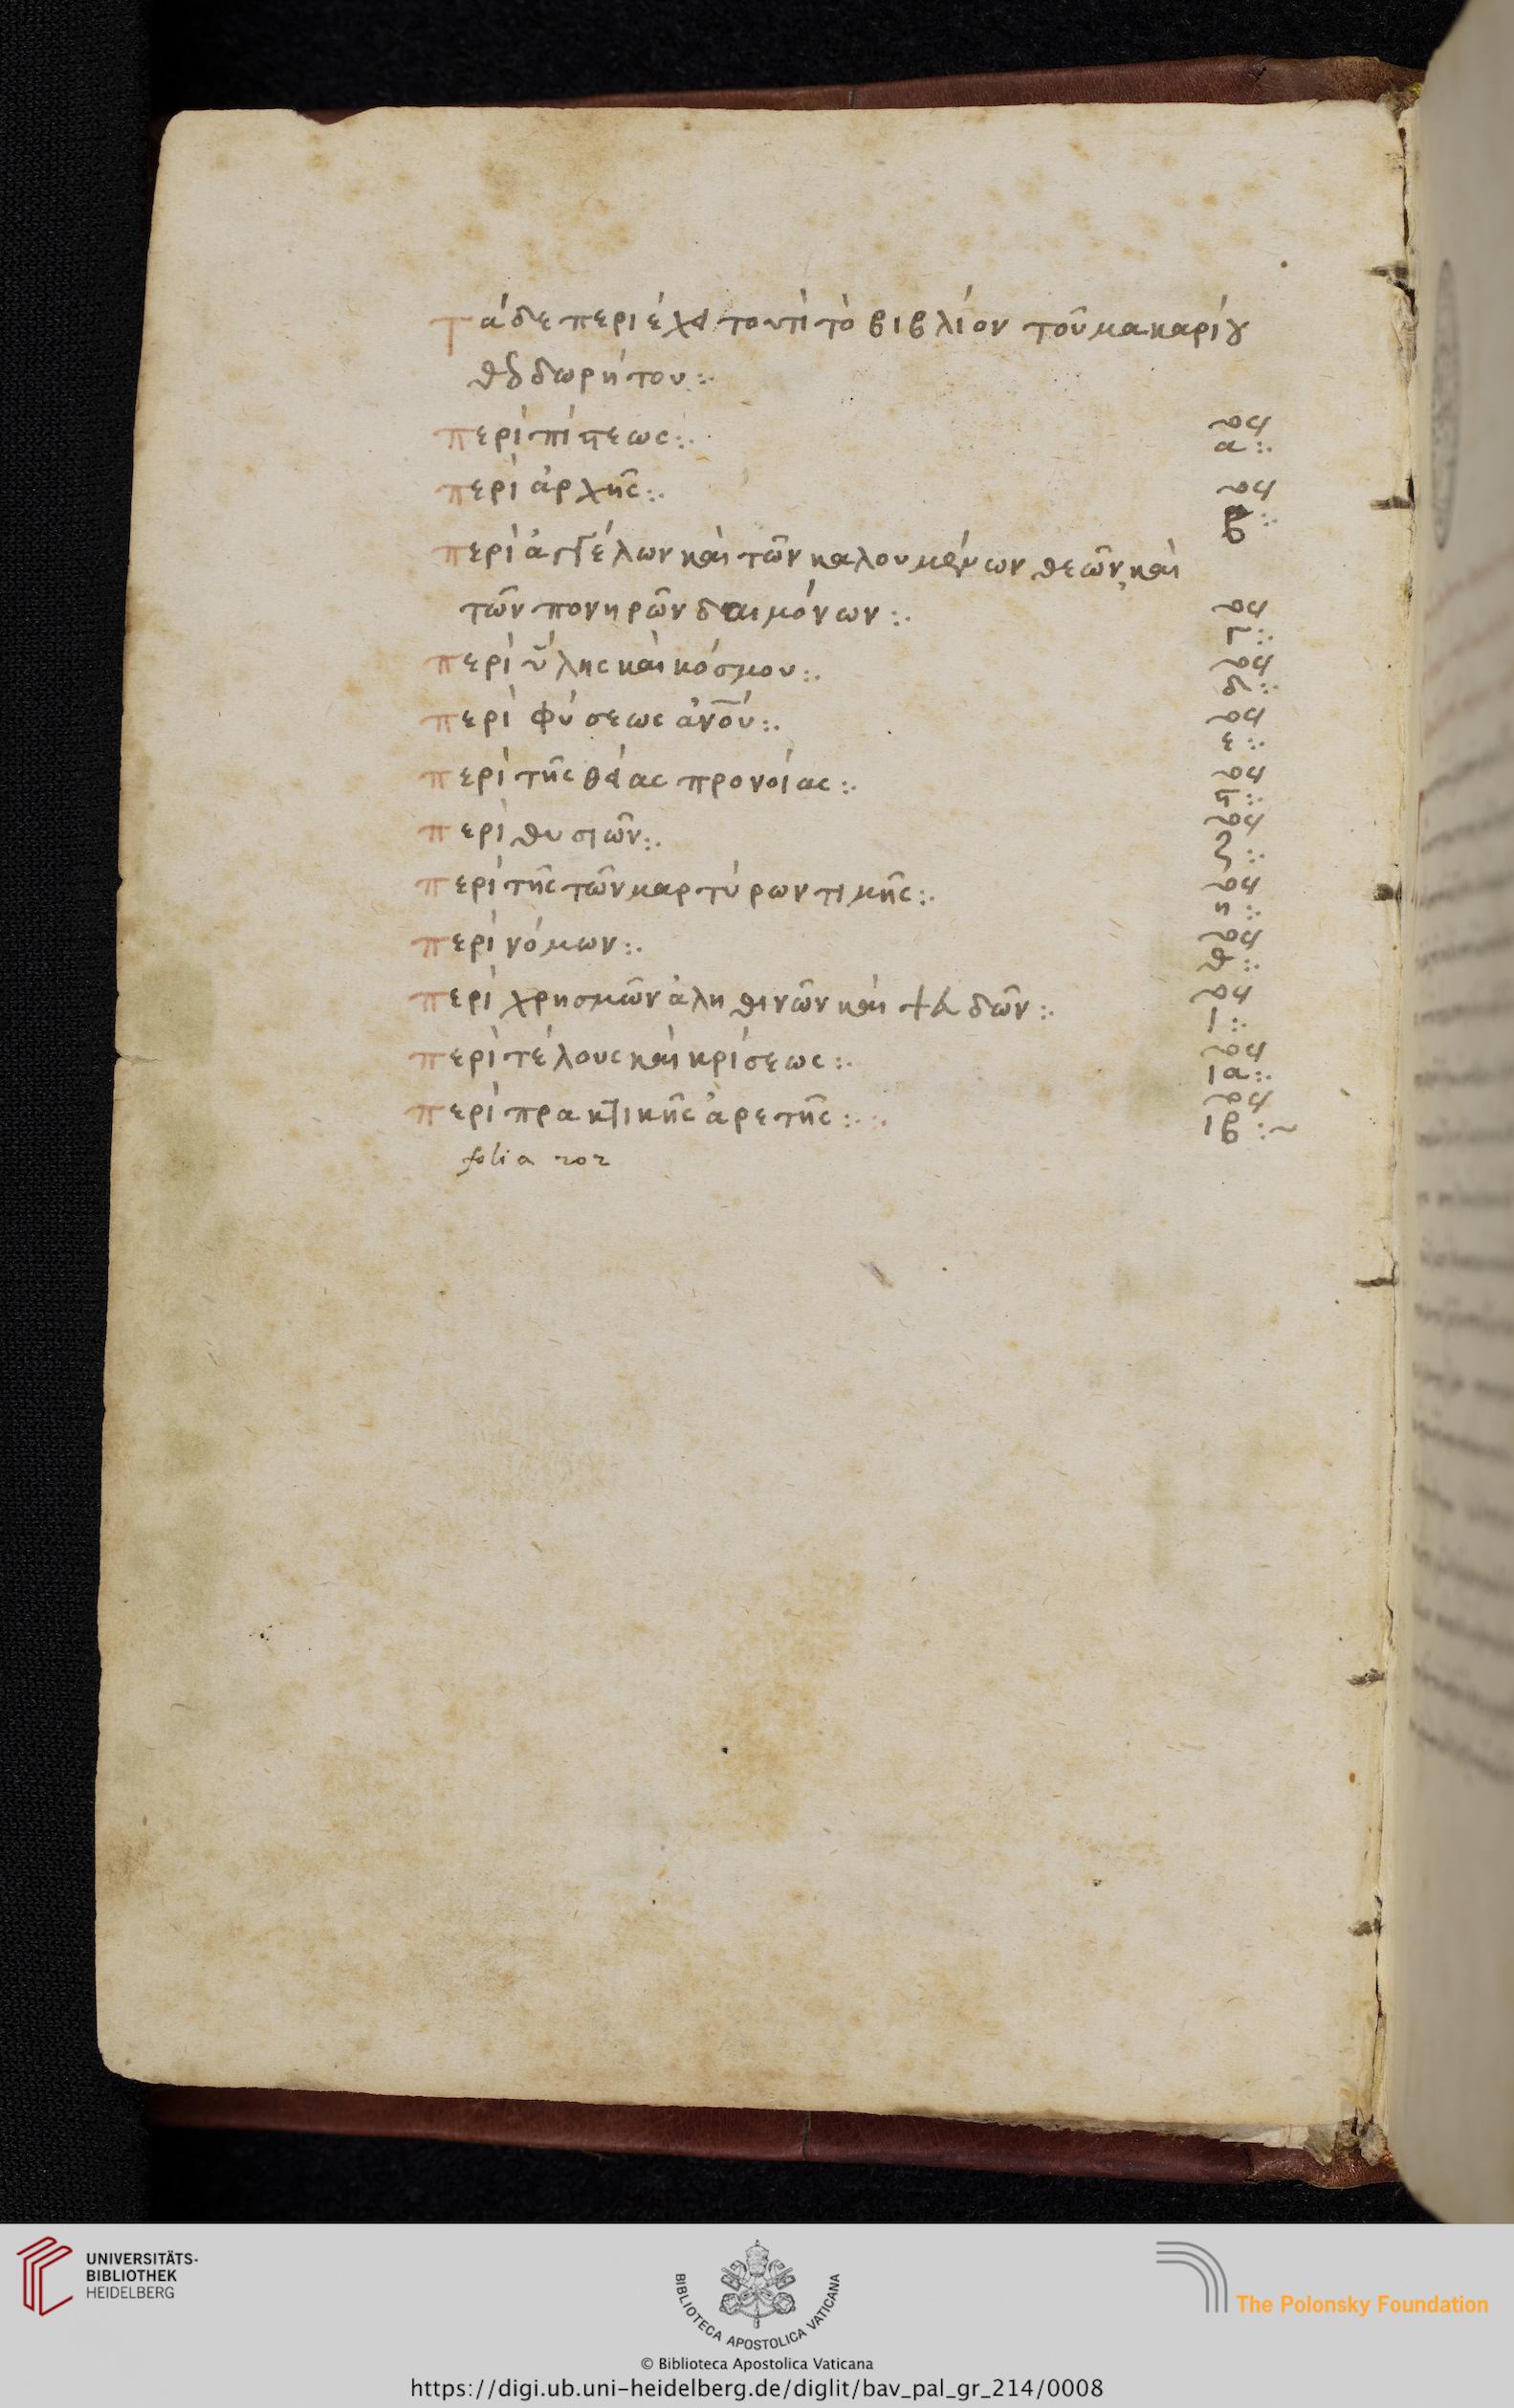 Τάδε περιέχει τουτὶ τὸ βιβλίον τοῦ μακαρίου
θεοδωρήτου :.
περὶ πίστεως :. α :.
περὶ ἀρχῆς :. β :.
περὶ ἀγγέλων καὶ τῶν καλουμένων θεῶν, καὶ
τῶν πονηρῶν δαιμόνων :. γ :.
περὶ ὕλης καὶ κόσμου :. δ :.
περὶ φύσεως ἀνου :. ε :.
περὶ τῆς θείας προνοίας :. ϛ :.
περὶ θυσιῶν :. ζ :.
περὶ τῆς τῶν μαρτύρων τιμῆς :. η :.
περὶ νόμων :. θ :.
περὶ χρησμῶν ἀληθινῶν καὶ ψευδῶν :. ι :.
περὶ τέλους καὶ κρίσεως :. ια :.
περὶ πρακτικῆς ἀρετῆς :. ιβ :~
folia 202
UNIVERSITÄTS-
BIBLIOTHEK
HEIDELBERG
BIBLIOTECA APOSTOLICA VATICANA
The Polonsky Foundation
© Biblioteca Apostolica Vaticana
https://digi.ub.uni-heidelberg.de/diglit/bav_pal_gr_214/0008